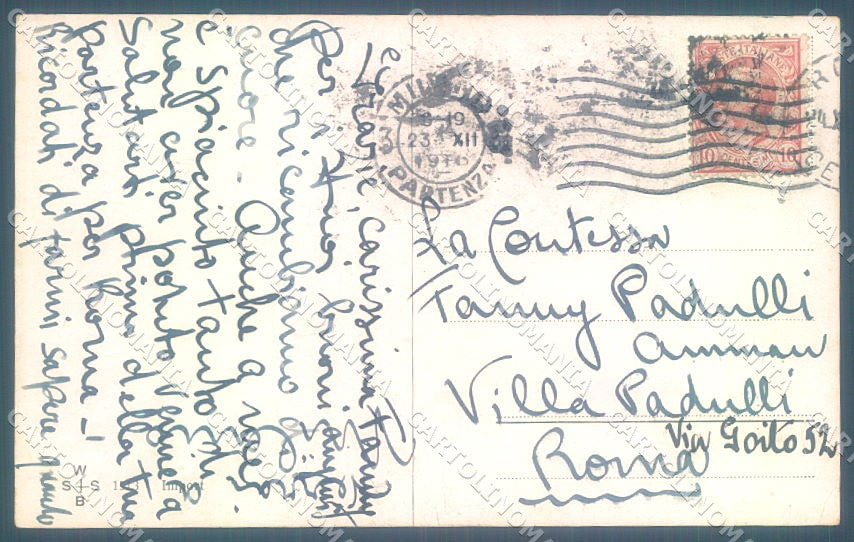 e grazie, carissima Fanny
Per i tuoi buoni auguri
che ricambiamo di
cuore - Anche a me
è spiaciuto tanto di
non aver potuto venire a
salutarti prima della tua
partenza per Roma -!
Ricordati di farmi sapere quando
MILANO
18-19
23 XII
PARTENZA
POSTE ITALIANE
10 CENTESIMI 10
La Contessa
Fanny Padulli
Amman
Villa Padulli
Via Goito 52
Roma
W
S S
B
Import
CARTOLINOMANIA